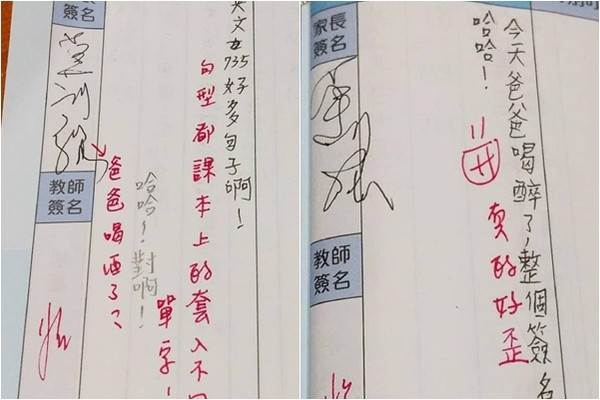 英文
好多句子啊!
句型都課本上的套入不
單字!
哈哈~!對啊!
爸爸喝酒了?
簽名
教師
簽名
今天爸爸喝醉了,整個簽名
哈哈!
真的好歪
家長
簽名
教師
簽名